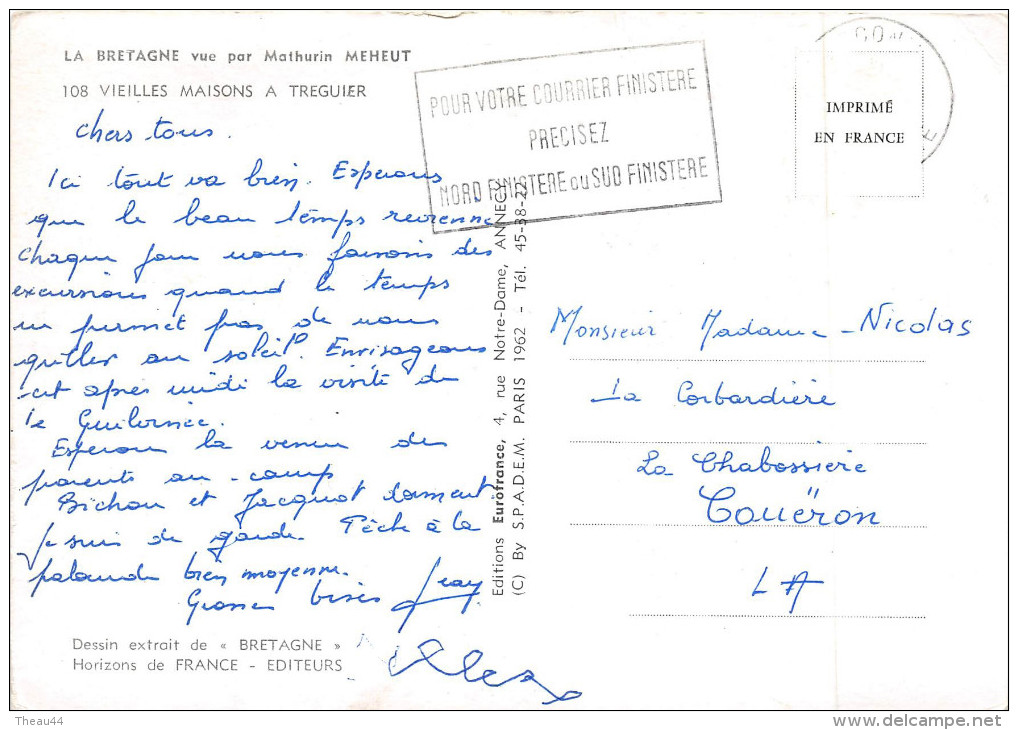 LA BRETAGNE vue par Mathurin MEHEUT
108 VIEILLES MAISONS A TREGUIER
Chers tous.
Ici tout va bien. Esperons
que le beau temps revienne
chaque jour nous faisons des
excursions quand le temps
ne permet pas de nous
griller au soleil. Envisageons
cet après midi la visite de
le
Esperons la venue des
parents au camp
Bichon et Jacquot dorment
Je suis de garde. Pêche à la
palourde bien moyenne.
Grosses bises
Dessin extrait de « BRETAGNE »
Horizons de FRANCE - EDITEURS
Editions Eurofrance, 4, rue Notre-Dame, ANNECY
(C) By S.P.A.D.E.M. PARIS 1962 - Tél. 45-38-22
POUR VOTRE COURRIER FINISTERE
PRECISEZ
NORD FINISTERE ou SUD FINISTERE
IMPRIMÉ
EN FRANCE
Monsieur Madame Nicolas
La Corbardière
La Chabossiere
Couëron
L A
Theau44
delcampe.net